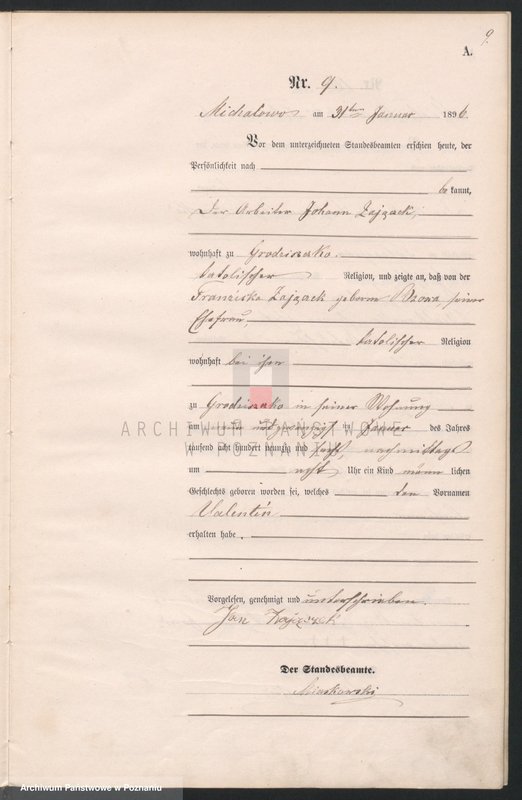 9.
A.
Nr. 9.
Michalowo am 31ten Januar 1896.
Vor dem unterzeichneten Standesbeamten erschien heute, der
Persönlichkeit nach
be kannt,
Der Arbeiter Johann Zajzack,
wohnhaft zu Grodziszko.
katolischer Religion, und zeigte an, daß von der
Franziska Zajzack geborne seiner
Ehefrau,
katolischer Religion
wohnhaft bei ihm
zu Grodziszko in seiner Wohnung
am Januar des Jahres
tausend acht hundert neunzig und sechs, nachmittags
um acht Uhr ein Kind männ lichen
Geschlechts geboren worden sei, welches den Vornamen
Valentin
erhalten habe.
Vorgelesen, genehmigt und unterschrieben.
Jan Zajączek
Der Standesbeamte.
Miaskowski
ARCHIWUM PAŃSTWOWE
W POZNANIU
Archiwum Państwowe w Poznaniu